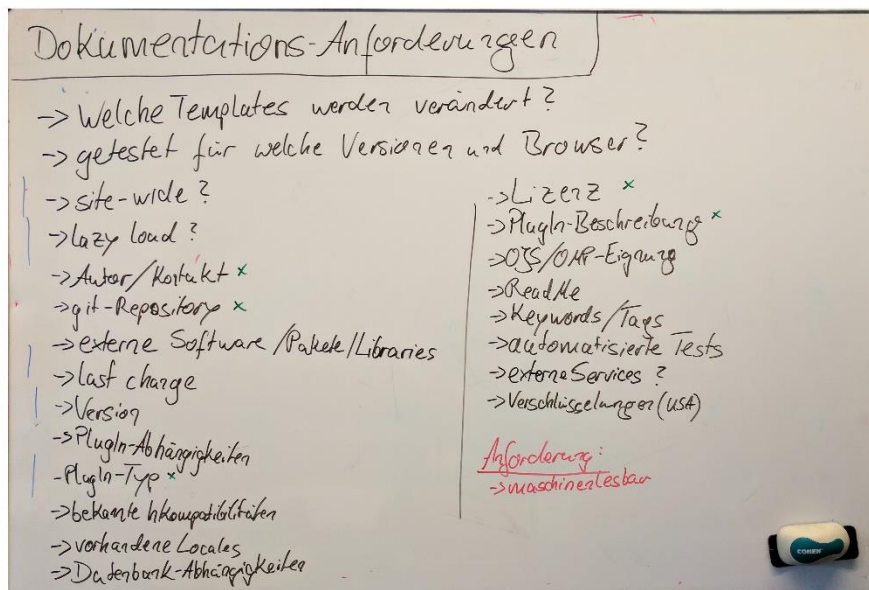 Dokumentations-Anforderungen
-> Welche Templates werden verändert?
-> getestet für welche Versionen und Browser?
-> site-wide?
-> lazy load?
-> Autor/Kontakt x
-> git-Repository x
-> externe Software/Pakete/Libraries
-> last change
-> Version
-> PlugIn-Abhängigkeiten
- PlugIn-Typ x
-> bekannte Inkompatibilitäten
-> vorhandene Locales
-> Datenbank-Abhängigkeiten
-> Lizenz x
-> PlugIn-Beschreibung x
-> OJS/OMP-Eignung
-> ReadMe
-> Keywords/Tags
-> automatisierte Tests
-> externe Services?
-> Verschlüsselungen (USA)
Anforderung:
-> maschinenlesbar
CONEN